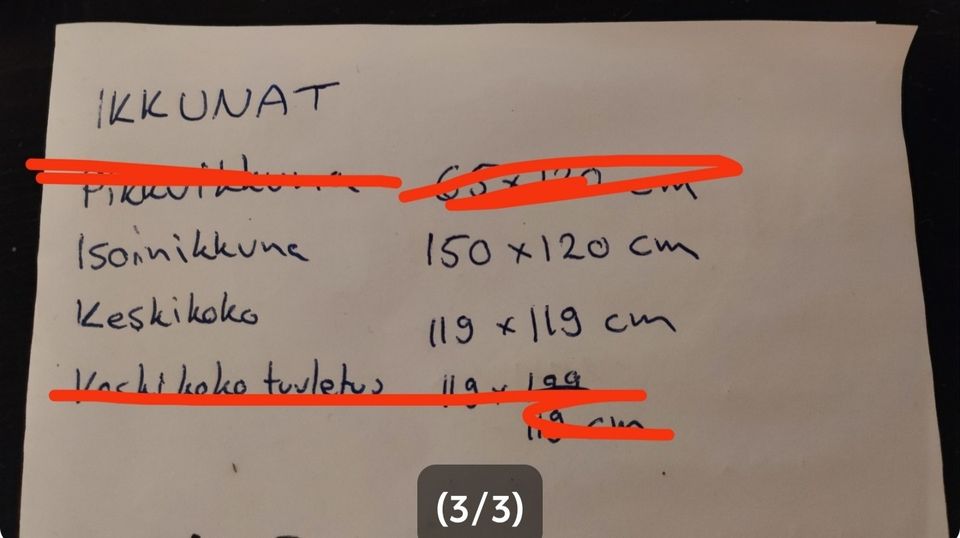 IKKUNAT
Pikkuikkuna 65 x 120 cm
Isoinikkuna 150 x 120 cm
Keskikoko 119 x 119 cm
Keskikoko tuuletus 119 x 199
119 cm
(3/3)